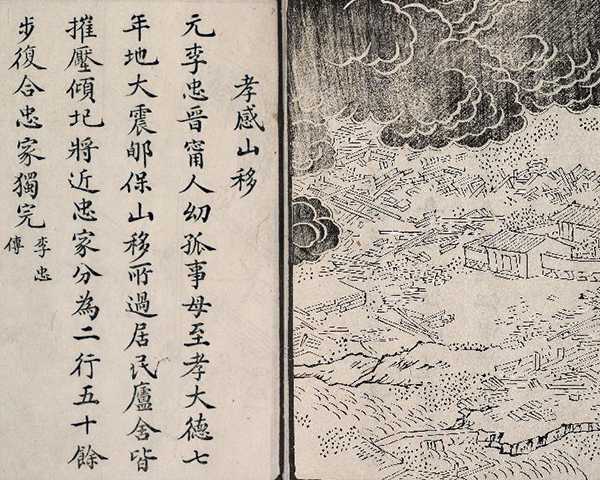 孝感山移
元李忠晉甯人幼孤事母至孝大德七
年地大震郇保山移所過居民廬舍皆
摧壓傾圮將近忠家分為二行五十餘
步復合忠家獨完
李忠
傳